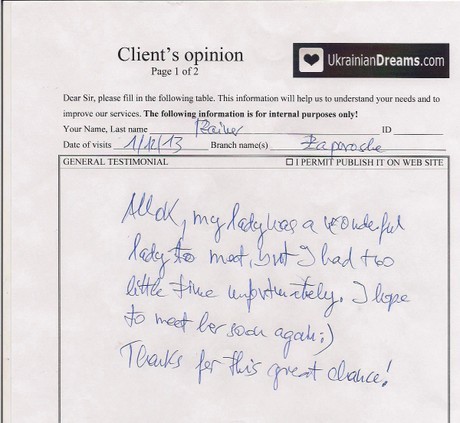 Client's opinion
UkrainianDreams.com
Page 1 of 2
Dear Sir, please fill in the following table. This information will help us to understand your needs and to
improve our services. The following information is for internal purposes only!
Your Name, Last name Rainer ID
Date of visits 1/12/13 Branch name(s) Zaporoshe
GENERAL TESTIMONIAL ☐ I PERMIT PUBLISH IT ON WEB SITE
All OK, my lady was a wonderful
lady to meet, but I had too
little time unfortunately. I hope
to meet her soon again;)
Thanks for this great chance!